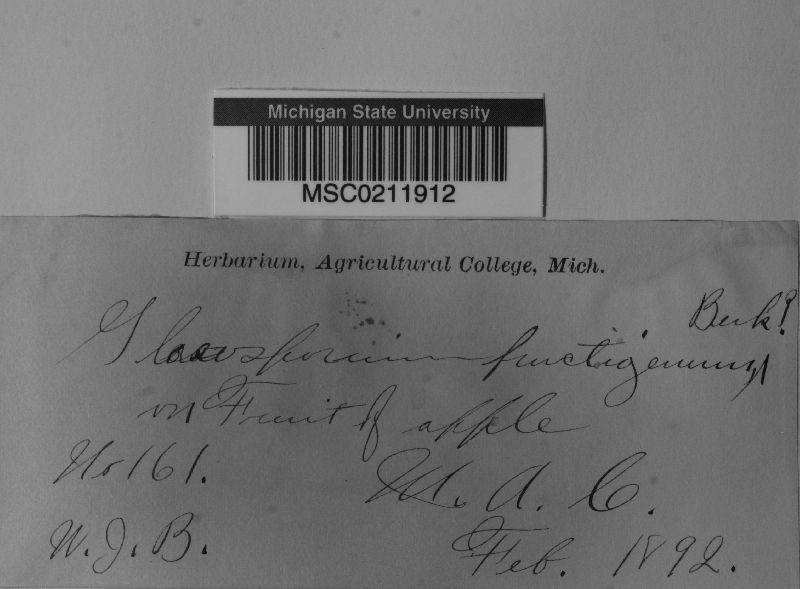 Michigan State University
MSC0211912
Herbarium, Agricultural College, Mich.
Berk?
Gloeosporium fructigenum
on Fruit of apple
No 161.
M. A. C.
W. J. B.
Feb. 1892.